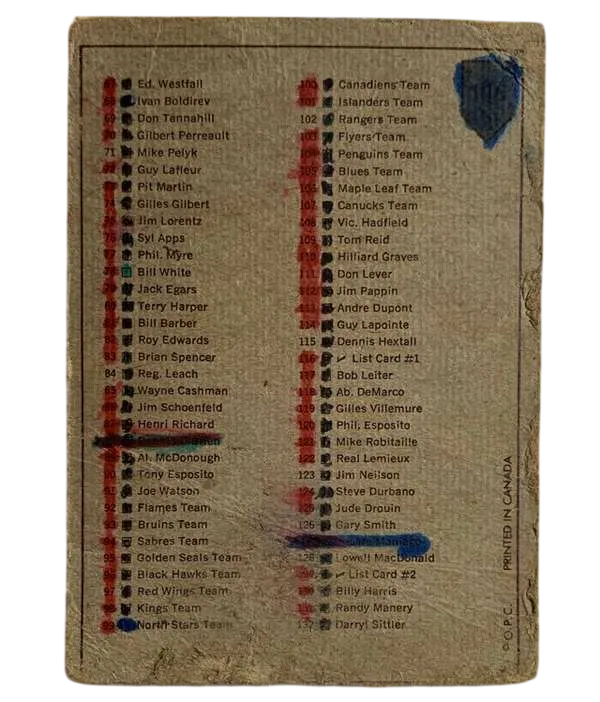 67 Ed. Westfall
68 Ivan Boldirev
69 Don Tannahill
70 Gilbert Perreault
71 Mike Pelyk
72 Guy Lafleur
73 Pit Martin
74 Gilles Gilbert
75 Jim Lorentz
76 Syl Apps
77 Phil. Myre
78 Bill White
79 Jack Egars
80 Terry Harper
81 Bill Barber
82 Roy Edwards
83 Brian Spencer
84 Reg. Leach
85 Wayne Cashman
86 Jim Schoenfeld
87 Henri Richard
89 Al. McDonough
90 Tony Esposito
91 Joe Watson
92 Flames Team
93 Bruins Team
94 Sabres Team
95 Golden Seals Team
96 Black Hawks Team
97 Red Wings Team
98 Kings Team
99 North Stars Team
100 Canadiens Team
101 Islanders Team
102 Rangers Team
103 Flyers Team
104 Penguins Team
105 Blues Team
106 Maple Leaf Team
107 Canucks Team
108 Vic. Hadfield
109 Tom Reid
110 Hilliard Graves
111 Don Lever
112 Jim Pappin
113 Andre Dupont
114 Guy Lapointe
115 Dennis Hextall
116 ✓ List Card #1
117 Bob Leiter
118 Ab. DeMarco
119 Gilles Villemure
120 Phil. Esposito
121 Mike Robitaille
122 Real Lemieux
123 Jim Neilson
124 Steve Durbano
125 Jude Drouin
126 Gary Smith
128 Lowell MacDonald
129 ✓ List Card #2
130 Billy Harris
131 Randy Manery
132 Darryl Sittler
© O.P.C. PRINTED IN CANADA